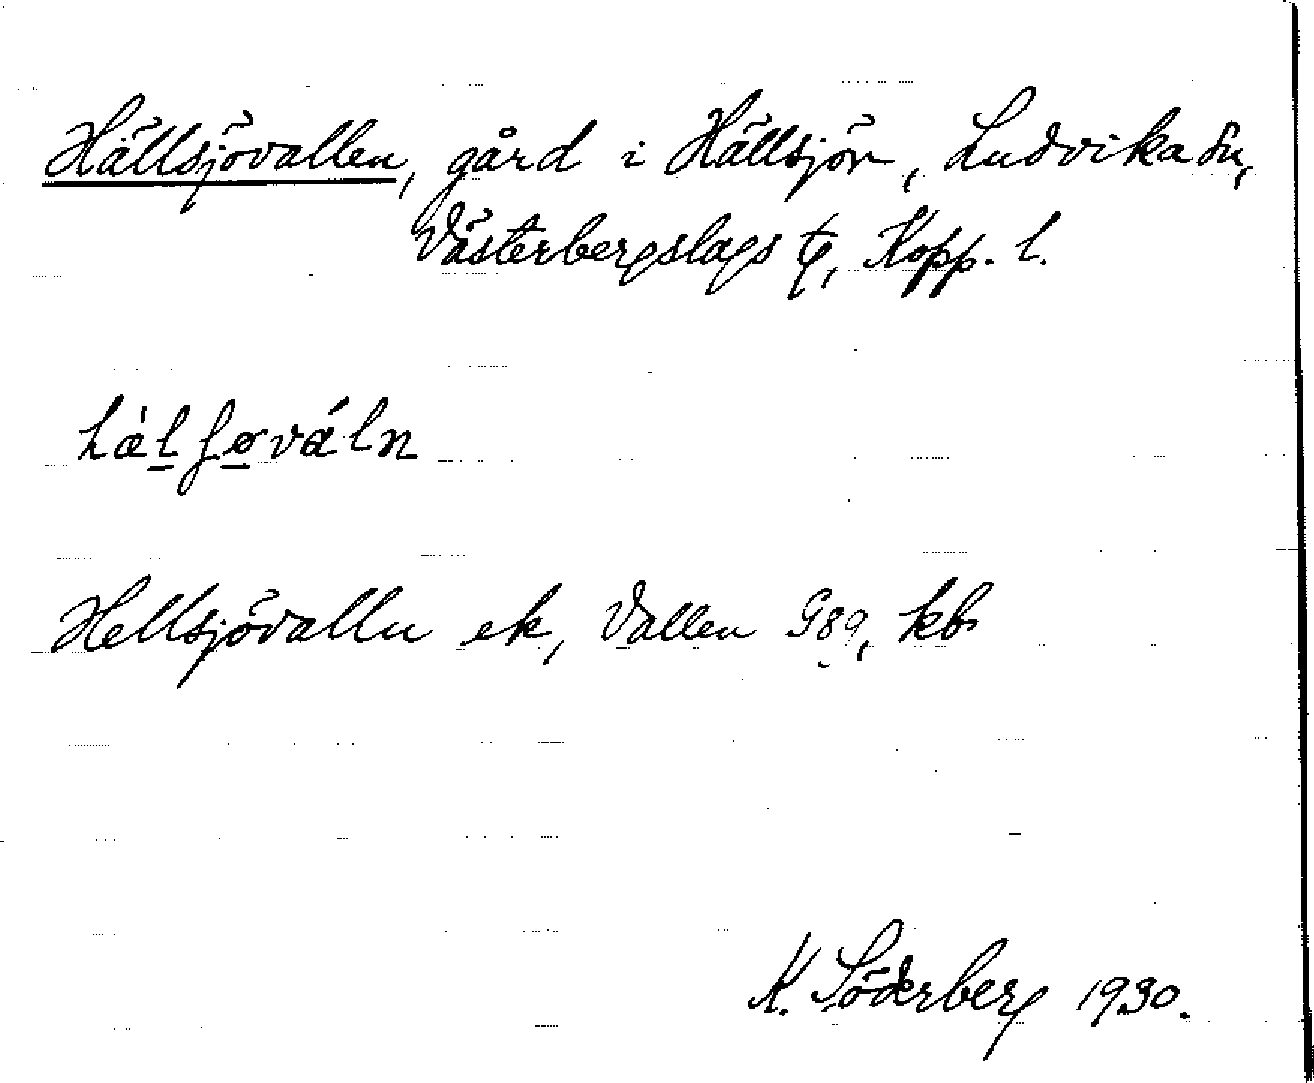 Hällsjövallen, gård i Hällsjön, Ludvika sn,
Västerbergslags tg, Kopp. l.
hàlʃøváln
Hellsjövallen ek, Vallen G89, kb
K. Söderberg 1930.